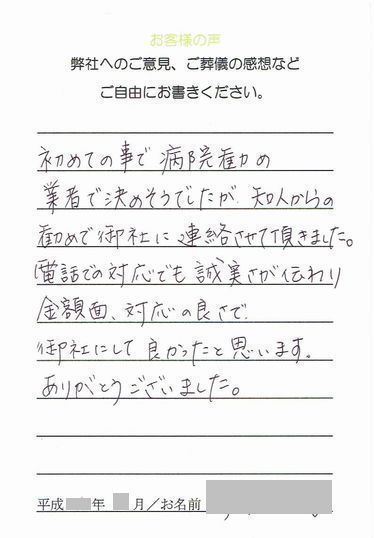 お客様の声
弊社へのご意見、ご葬儀の感想など
ご自由にお書きください。
初めての事で病院勧め
業者で決めそうでしたが知人からの
勧めで御社に連絡させて頂きました。
電話での対応でも誠実さが伝わり
金額面、対応の良さで
御社にして良かったと思います。
ありがとうございました。
平成 年 月/お名前